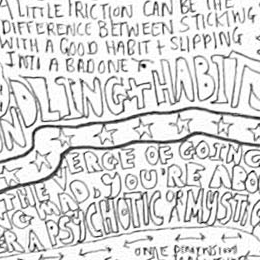 A LITTLE FRICTION CAN BE THE
DIFFERENCE BETWEEN STICKING
WITH A GOOD HABIT + SLIPPING
INTO A BAD ONE
DLING + HABIT
VERGE OF GOING
THE MAD, YOU'RE ABO
PSYCHOTIC OR MYSTIC
ONE DIMENSION